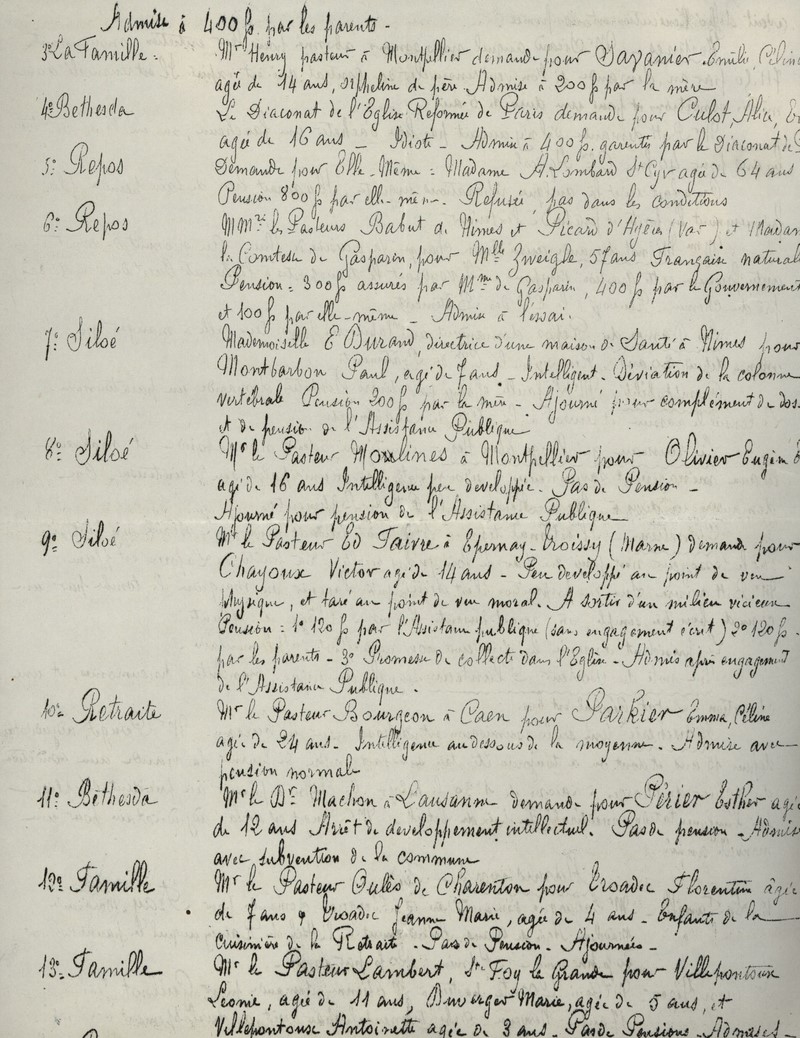 Admise à 400 f. par les parents -
3º La Famille : Mr Henry pasteur à Montpellier demande pour Savanier Emilie, Céline
agée de 14 ans, orpheline de père Admise à 200 f par la mère
4º Bethesda Le Diaconat de l'Eglise Réformée de Paris demande pour Culot, Alice,
agée de 16 ans - Idiote - Admise à 400 fs. garantis par le Diaconat de
5º Repos Demande pour Elle-Même : Madame A. Lombard St Cyr agée de 64 ans
Pension 800 fs par elle-même - Refusée, pas dans les conditions
6º Repos MMrs les Pasteurs Babut de Nimes et Picard d'Hyères (Var) et Madam
la Comtesse de Gasparin, pour Mlle Zweigle, 57 ans Française natural
Pension : 300 fs assurés par Mme de Gasparin, 400 fs par le Gouvernement
et 100 fs par elle-même - Admise à l'essai.
7º Siloé Mademoiselle E Durand, directrice d'une maison de Santé à Nimes pour
Montbarbon Paul, agé de 7 ans - Intelligent - Déviation de la colonne
vertébrale Pension 200 fs par la mère - Ajourné pour complément de dos
et de pension de l'Assistance Publique
8º Siloé Mr le Pasteur Moulines à Montpellier pour Olivier Eugène E
agé de 16 ans Intelligence peu developpée. Pas de Pension -
Ajourné pour pension de l'Assistance Publique
9º Siloé Mr le Pasteur Ed Faivre à Epernay-Troissy (Marne) demande pour
Chayoux Victor agé de 14 ans - Peu developpé au point de vue
physique, et taré au point de vue moral. A sortir d'un milieu vicieux
Pension : 1º 120 fs par l'Assistance publique (sans engagement écrit) 2º 120 fs.
par les parents - 3º Promesse de collecte dans l'Eglise - Admis après engagement
de l'Assistance Publique.
10º Retraite Mr le Pasteur Bourgeon à Caen pour Parkier Emma, Céline
agée de 24 ans - Intelligence au dessous de la moyenne. Admise avec
pension normale
11º Béthesda Mr le Dr Machon à Lausanne demande pour Périer Esther agée
de 12 ans Arrêt de developpement intellectuel. Pas de pension - Admise
avec subvention de la commune
12º Famille Mr le Pasteur Oulès de Charenton pour Broadec Florentine âgée
de 7 ans & Broadec Jeanne Marie, agée de 4 ans - Enfants de la
Cuisinière de la Retraite - Pas de Pension - Ajournées -
13º Famille Mr le Pasteur Lambert, Ste Foy la Grande pour Villepontoux
Leonie, agée de 11 ans, Duverger Marie, agée de 5 ans, et
Villepontoux Antoinette agée de 3 ans - Pas de Pensions - Admises -